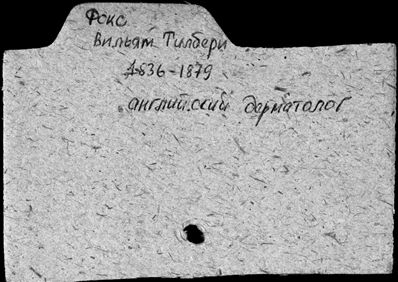 Фокс
Вильям Тилбери
1836-1879
английский дерматолог